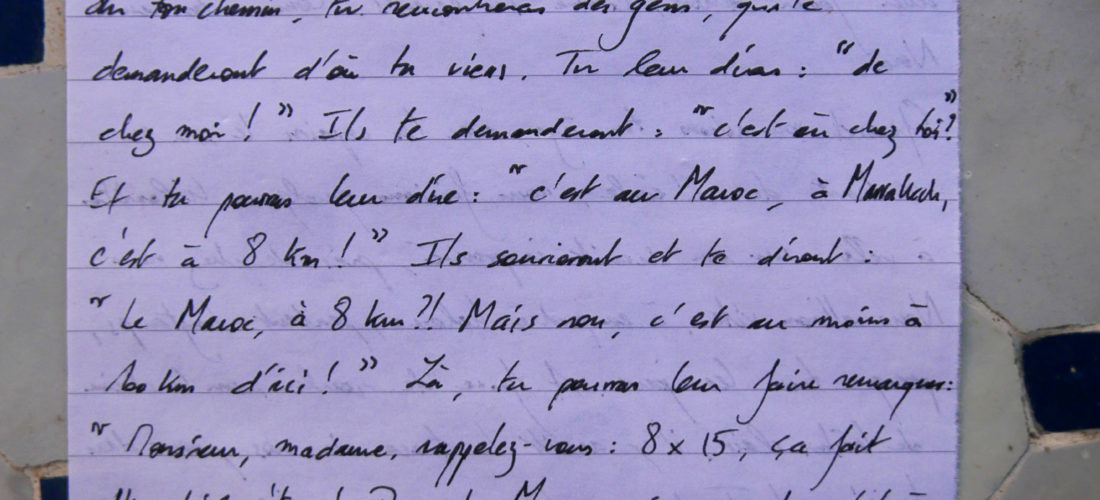 ton chemin, tu rencontreras des gens, qui te
demanderont d'où tu viens. Tu leur diras : "de
chez moi ! " Ils te demanderont : "c'est où chez toi?"
Et tu pourras leur dire : "c'est au Maroc, à Marrakech,
c'est à 8 km ! " Ils souriront et te diront :
"Le Maroc, à 8 km ?! Mais non, c'est au moins à
km d'ici ! " Là, tu pourras leur faire remarquer :
"Monsieur, madame, rappelez-vous : 8 x 15, ça fait